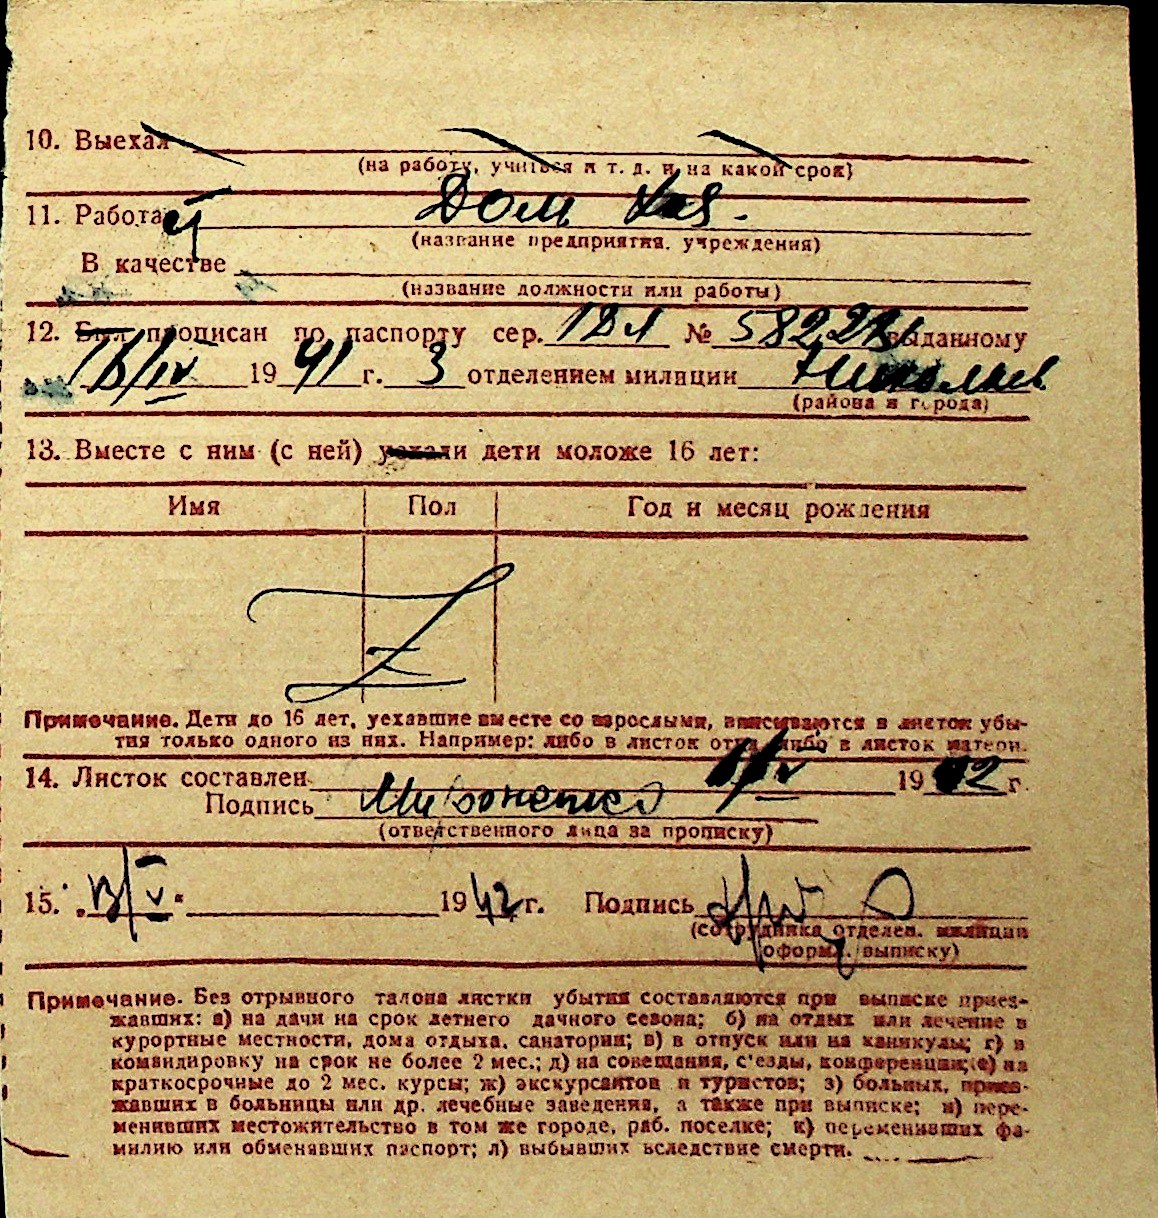 10. Выехал
(на работу, учиться и т. д. и на какой срок)
11. Работает Дом Хоз.
(название предприятия, учреждения)
В качестве
(название должности или работы)
12. Был прописан по паспорту сер. № выданному
19 41 г. 3 отделением милиции
(района и города)
13. Вместе с ним (с ней) уехали дети моложе 16 лет:
Имя Пол Год и месяц рождения
Z
Примечание. Дети до 16 лет, уехавшие вместе со взрослыми, вписываются в листок убы-
тия только одного из них. Например: либо в листок отца либо в листок матери.
14. Листок составлен 19 42 г.
Подпись
(ответственного лица за прописку)
15. „13/V“ 19 42 г. Подпись
(сотрудника отделен. милиции
оформ. выписку)
Примечание. Без отрывного талона листки убытия составляются при выписке приез-
жавших: а) на дачи на срок летнего дачного сезона; б) на отдых или лечение в
курортные местности, дома отдыха, санатории; в) в отпуск или на каникулы; г) в
командировку на срок не более 2 мес.; д) на совещания, с'езды, конференции; е) на
краткосрочные до 2 мес. курсы; ж) экскурсантов и туристов; з) больных, приез-
жавших в больницы или др. лечебные заведения, а также при выписке; и) пере-
менивших местожительство в том же городе, раб. поселке; к) переменивших фа-
милию или обменявших паспорт; л) выбывших вследствие смерти.